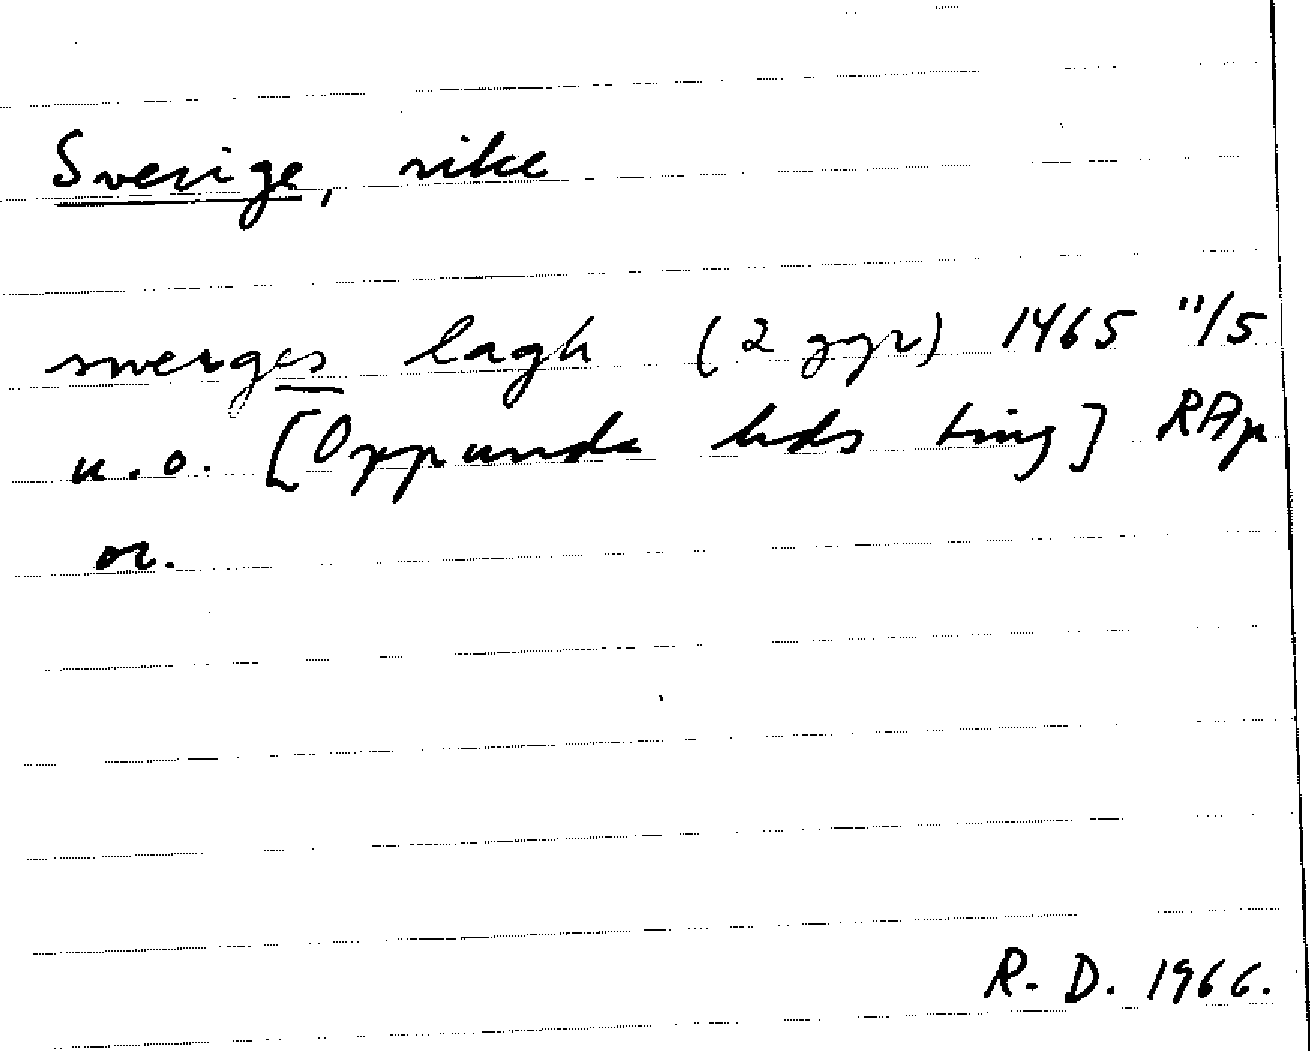 Sverige, rike
swerges lagh (2 ggr) 1465 11/5
u.o. [Oppunda hds ting] RAp
or.
R. D. 1966.